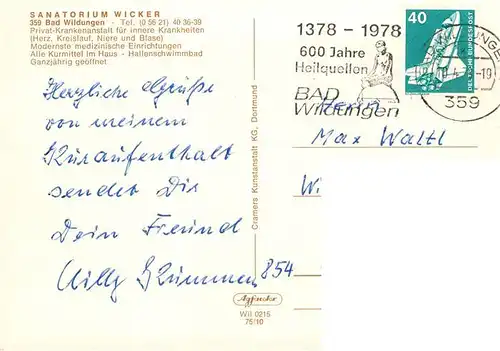 SANATORIUM WICKER
359 Bad Wildungen - Tel. (0 56 21) 40 36-39
Privat-Krankenanstalt für innere Krankheiten
(Herz, Kreislauf, Niere und Blase)
Modernste medizinische Einrichtungen
Alle Kurmittel im Haus - Hallenschwimmbad
Ganzjährig geöffnet
Herzliche Grüße
von meinem
Kuraufenthalt
sendet Dir
Dein Freund
Willy
Cramers Kunstanstalt KG, Dortmund
Agfacolor
Wil 0215
75/10
1378 - 1978
600 Jahre
Heilquellen
BAD
Wildungen
40
DEUTSCHE BUNDESPOST
359
Herrn
Max Waltl
W
854